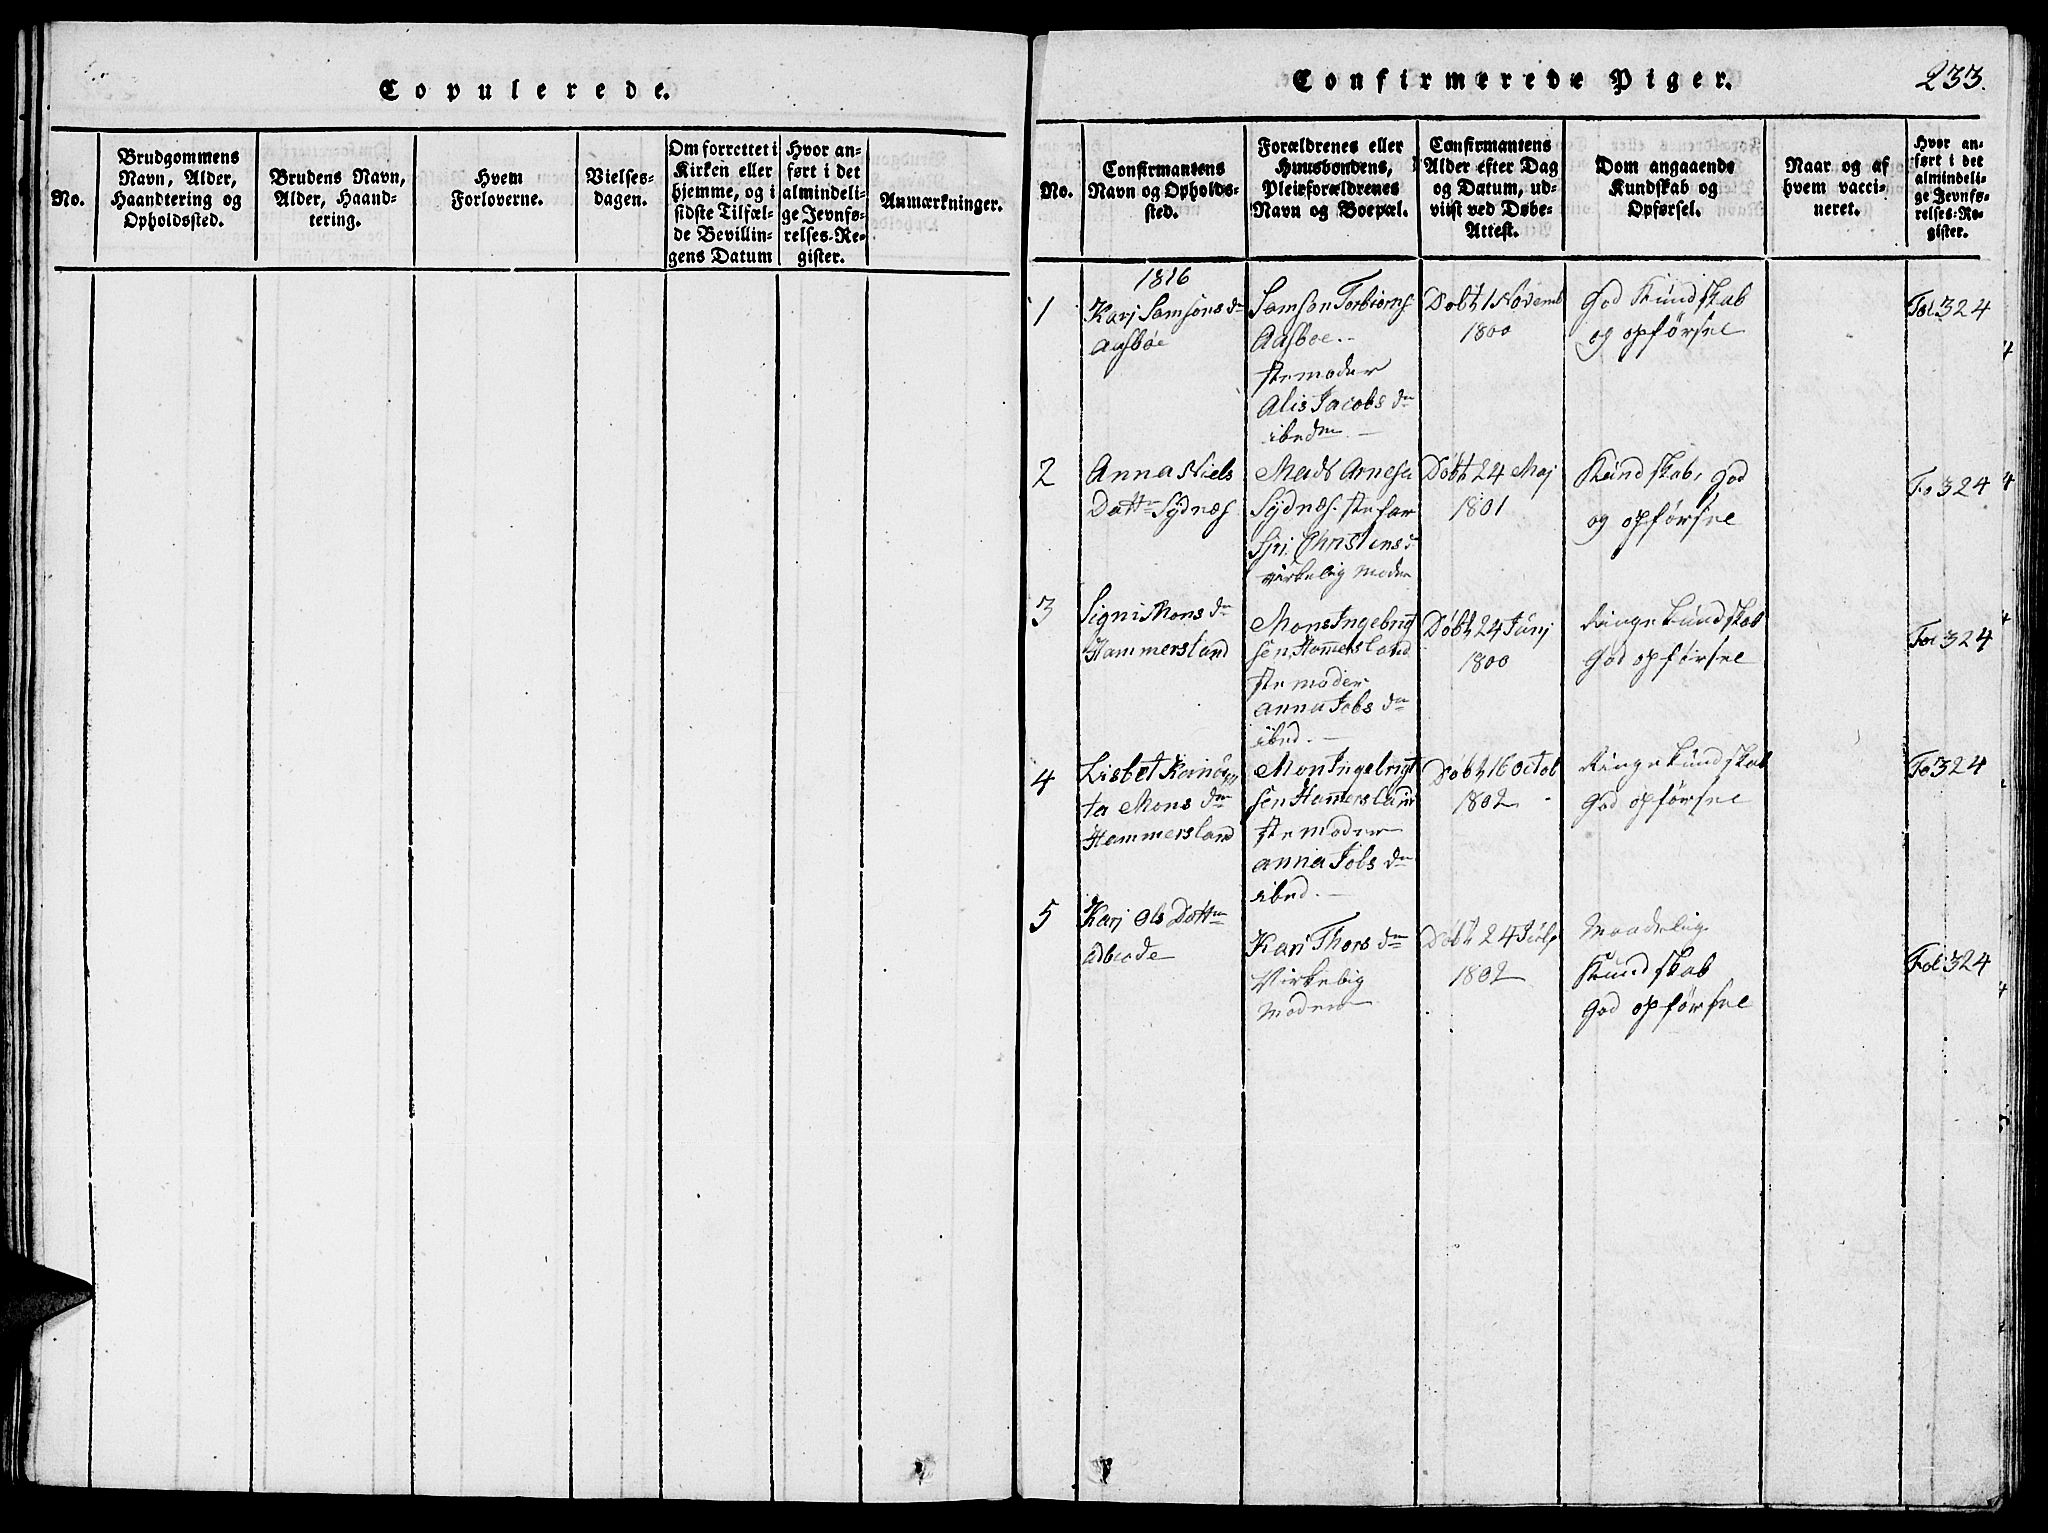 Copulerede.
No.
Brudgommens
Navn, Alder,
Haandtering og
Opholdssted.
Brudens Navn,
Alder, Haand-
tering.
Hvem
Forloverne.
Vielses-
dagen.
Om forrettet i
Kirken eller
hjemme, og i
sidste Tilfæl-
de Bevillin-
gens Datum
Hvor an-
ført i det
almindeli-
ge Jevnfø-
relses-Re-
gister.
Anmærkninger.
Confirmerede Piger.
233.
No.
Confirmantens
Navn og Opholds-
sted.
Forældrenes eller
Huusbondens,
Pleieforældrenes
Navn og Boepæl.
Confirmantens
Alder efter Dag
og Datum, ud-
viist ved Døbe-
Attest.
Dom angaaende
Kundskab og
Opførsel.
Naar og af
hvem vacci-
neret.
Hvor an-
ført i det
almindeli-
ge Jevnfø-
relses-Re-
gister.
1816
1
Karj Samsons dr
Aasbøe
Samson Torbiørns
Aasboe
stemoder
Alis Jacobs dr
ibedm
Døbt 1 Novemb
1800
God Kundskab
og opførsel
Fol 324
2
Anna Niels
Dattr Sÿdnes
Mads Arnesen
Sÿdnes. stefar
Sÿri Christens d
virkelig Moder
Døbt 24 Maj
1801
Kundskab, God
og opførsel
Fo 324
3
Signi Mons dr
Hammersland
Mons Ingebrigt
sen Ham̄ersland
stemoder
anna Jobs dr
ibed.
Døbt 24 Junj
1800
Ringe kundskab
God opførsel
Fol 324
4
Lisbet
ta Mons dr
Hammersland
Mon Ingebrigt
sen Ham̄ersland
stemoder
anna Jobs dr
ibed.
Døbt 16 octob
1802
Ringe kundskab
God opførsel
Fo 324
5
Karj Ols Dattr
Kari Thors dr
Virkelig
Moder
Døbt 24 Julÿ
1802
Maadelig
Kundskab
God opførsel
Fol 324